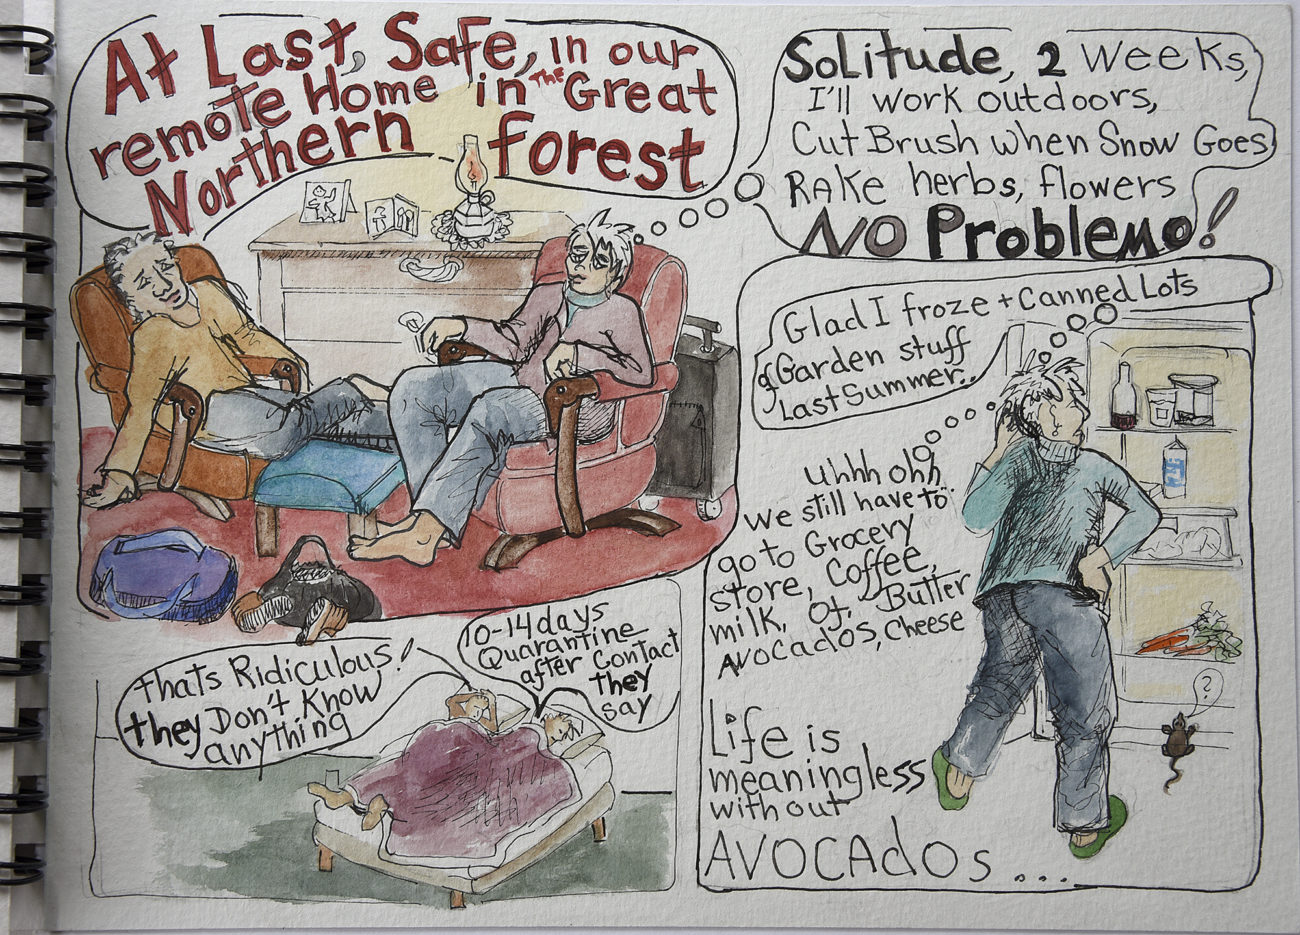 At Last, Safe, in our
remote Home in the Great
Northern forest
Solitude, 2 Weeks,
I'll work outdoors,
Cut Brush when Snow Goes
Rake herbs, flowers
No Problemo!
Glad I froze + Canned Lots
of Garden stuff
Last Summer...
Uhhh ohh
we still have to..
go to Grocery
store, Coffee,
milk, OJ, Butter
Avocados, Cheese
Life is
meaningless
without
AVOCAdos....
?
10-14 days
Quarantine
after Contact
they
say
thats Ridiculous!
they Don't Know
anything